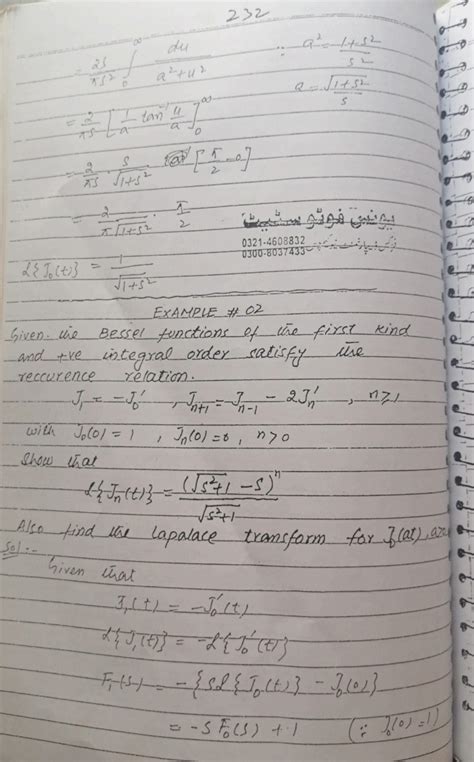 232
= 2s/πs² ∫₀^∞ du/(a²+u²) ∵ a² = (1+s²)/s²
a = √(1+s²)/s
= 2/πs [1/a tan⁻¹ u/a]₀^∞
= 2/πs · s/√(1+s²) [π/2 - 0]
= 2/(π√(1+s²)) · π/2
یونس فوٹو سٹیٹ
0321-4608832
0300-8037433
L{J₀(t)} = 1/√(1+s²)
EXAMPLE # 02
Given the Bessel functions of the first kind
and +ve integral order satisfy the
reccurence relation.
J₁ = -J₀' , Jₙ₊₁ = Jₙ₋₁ - 2Jₙ' , n≥1
with J₀(0) = 1 , Jₙ(0)=0, n>0
Show that
L{Jₙ(t)} = (√(s²+1) - s)ⁿ/√(s²+1)
Also find the lapalace transform for J₀(at), a>0
Sol:-
Given that
J₁(t) = -J₀'(t)
L{J₁(t)} = -L{J₀'(t)}
F₁(s) = -{sL{J₀(t)} - J₀(0)}
= -sF₀(s) + 1 (∵ J₀(0)=1)